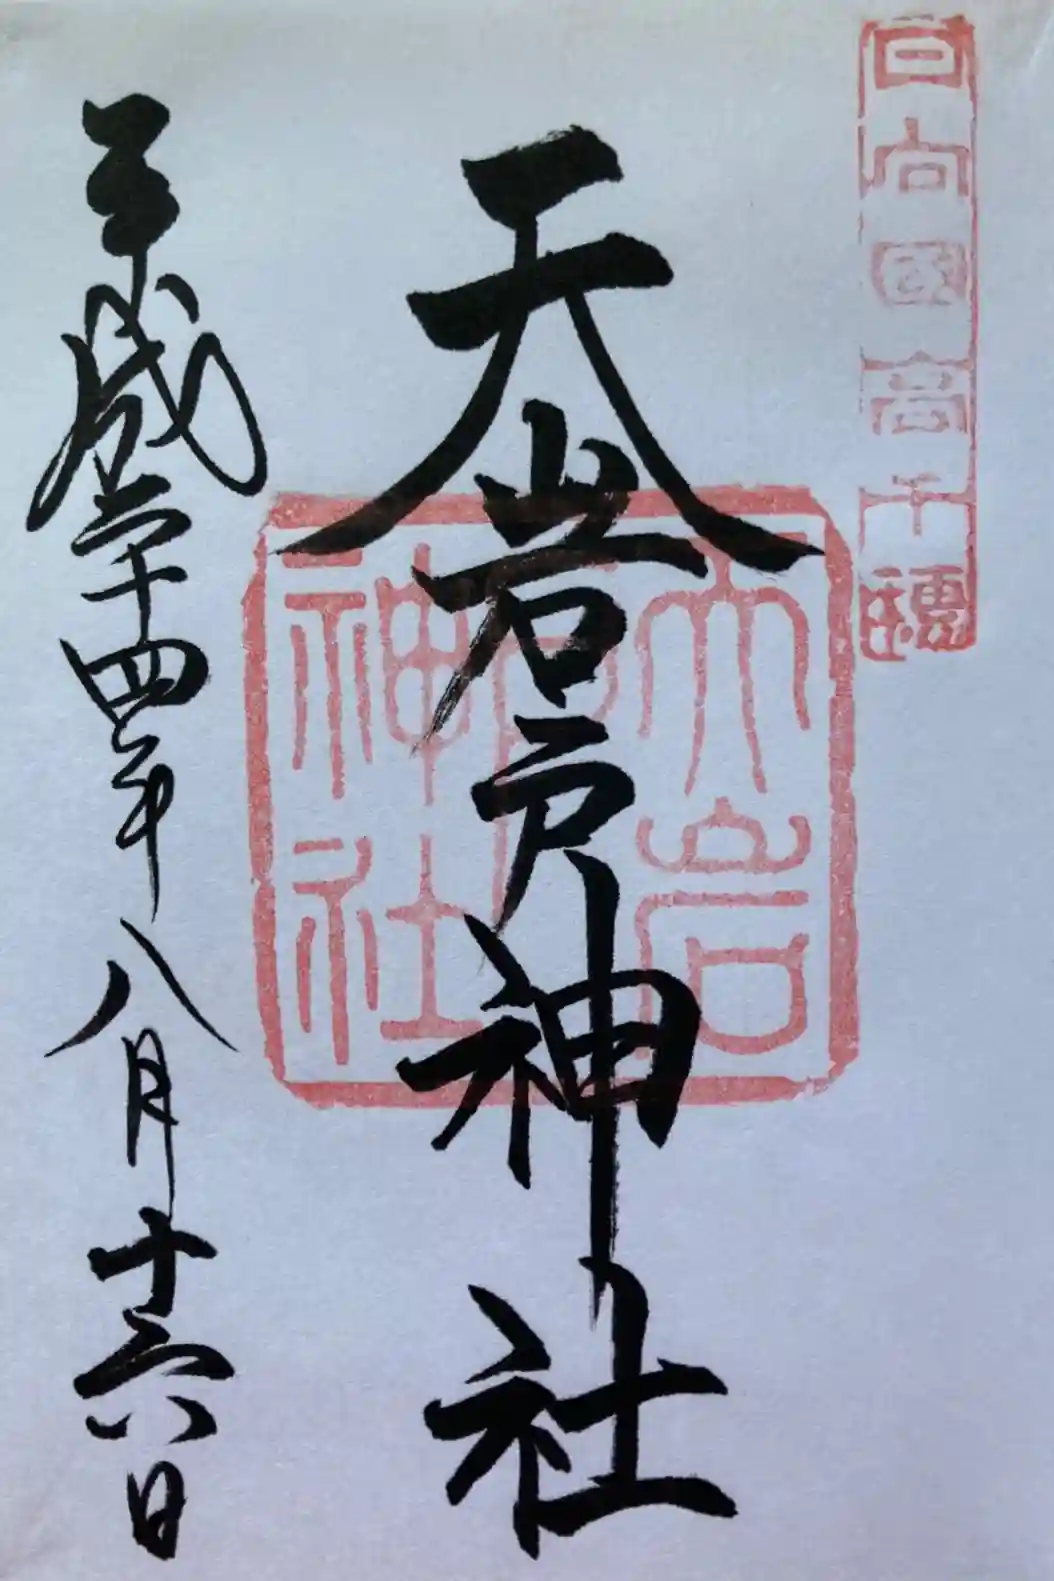 日向國高千穗
天岩戸神社
天岩戸神社
平成二十四年八月十六日